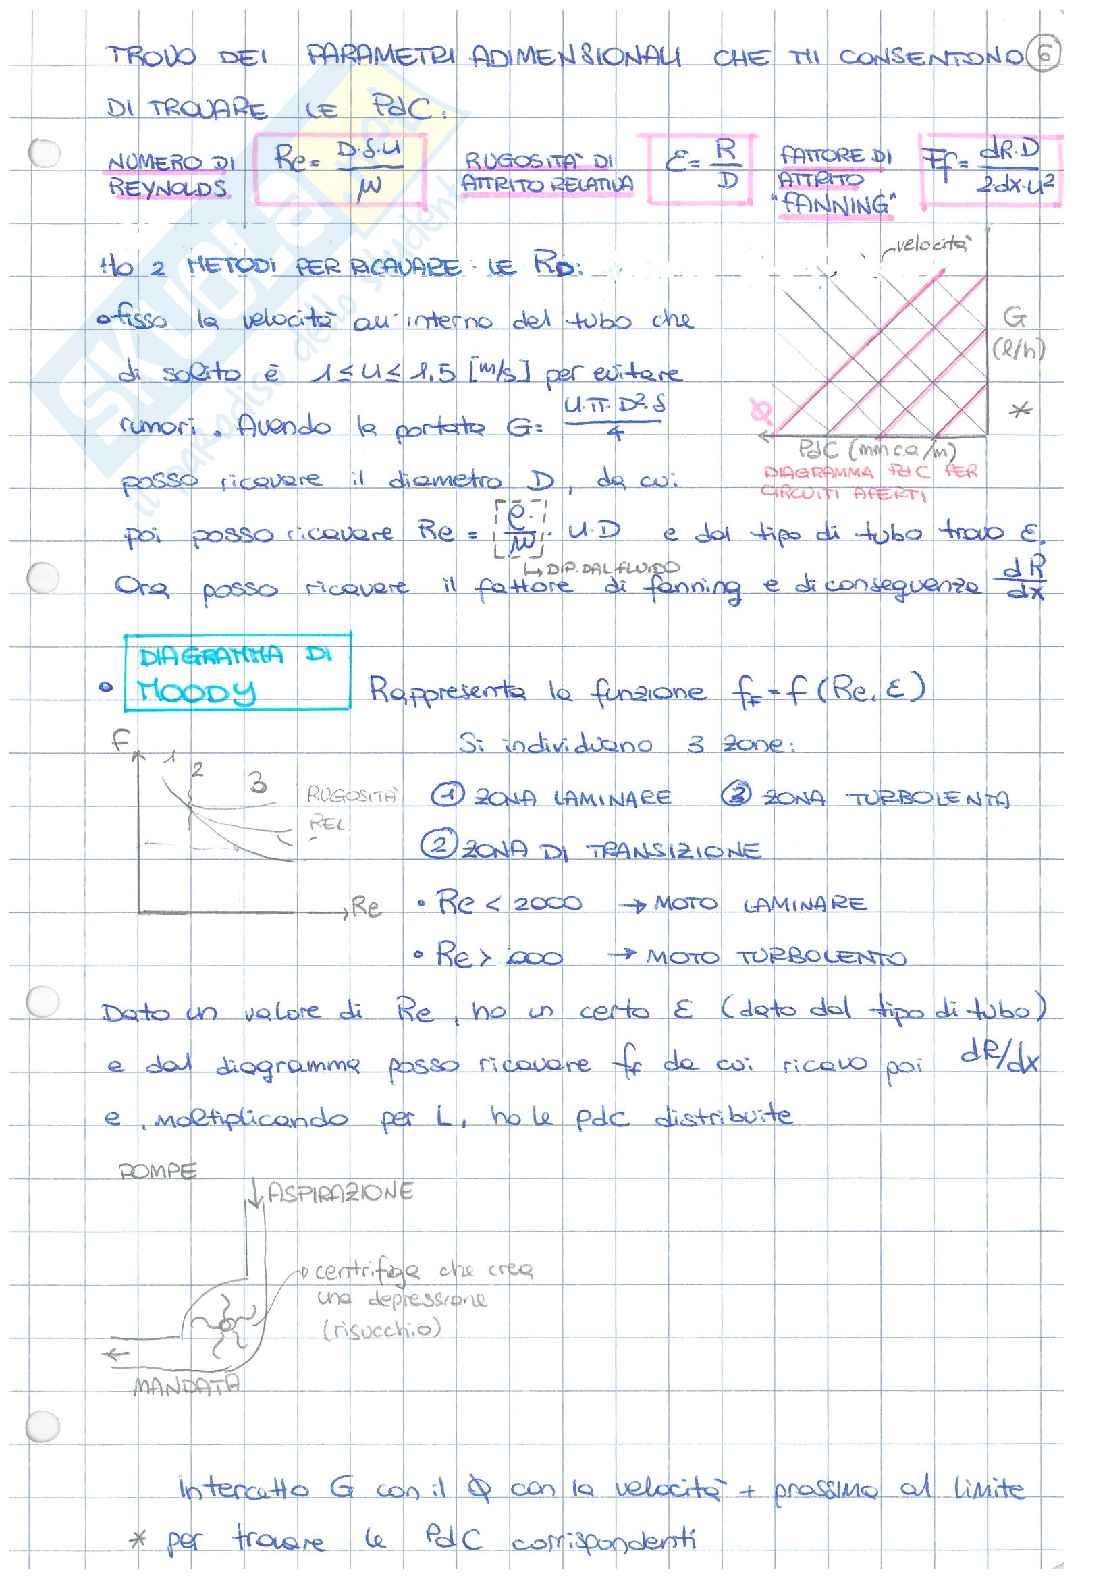 TROVO DEI PARAMETRI ADIMENSIONALI CHE MI CONSENTONO 6
DI TROVARE LE PdC:
NUMERO DI REYNOLDS Re = D·ρ·u / μ
RUGOSITÀ DI ATTRITO RELATIVA ε = R / D
FATTORE DI ATTRITO "FANNING" Ff = dR·D / 2dx·u²
Ho 2 METODI PER RICAVARE LE RD:
velocità
• fisso la velocità all'interno del tubo che
di solito è 1 ≤ u ≤ 1,5 [m/s] per evitare
rumori. Avendo la portata G = u·π·D²·ρ / 4
G
(l/h)
*
Φ
PdC (mm c.a/m)
DIAGRAMMA PdC PER
CIRCUITI APERTI
posso ricavare il diametro D, da cui
poi posso ricavare Re = ρ/μ · u·D e dal tipo di tubo trovo ε.
↳ DIP. DAL FLUIDO
Ora posso ricavare il fattore di fanning e di conseguenza dR/dx
• DIAGRAMMA DI
MOODY
Rappresenta la funzione fF = f(Re, ε)
Si individuano 3 zone:
f 1 2 3
RUGOSITÀ
REL
Re
① ZONA LAMINARE ③ ZONA TURBOLENTA
② ZONA DI TRANSIZIONE
• Re < 2000 → MOTO LAMINARE
• Re > → MOTO TURBOLENTO
Dato un valore di Re, ho un certo ε (dato dal tipo di tubo)
e dal diagramma posso ricavare fF da cui ricavo poi dR/dx
e, moltiplicando per L, ho le PdC distribuite
POMPE
ASPIRAZIONE
centrifuga che crea
una depressione
(risucchio)
MANDATA
Intercetto G con il Φ con la velocità + prossima al limite
* per trovare le PdC corrispondenti
SKUOLA.net
il paradiso dello studente